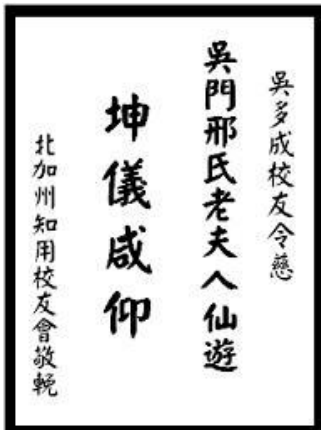 吳多成校友令慈
吳門邢氏老夫人仙遊
坤儀咸仰
北加州知用校友會敬輓